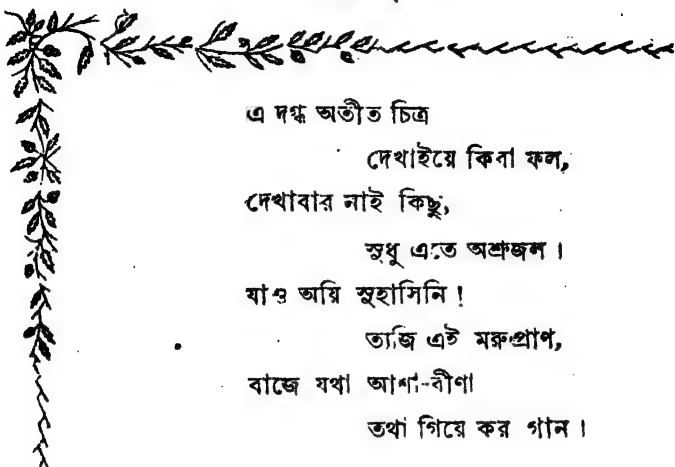 এ দগ্ধ অতীত চিত্র
দেখাইয়ে কিবা ফল,
দেখাবার নাই কিছু,
সুধু এতে অশ্রুজল।
যাও অয়ি সুহাসিনি!
ত্যজি এই মরুপ্রাণ,
বাজে যথা আশা-বীণা
তথা গিয়ে কর গান।